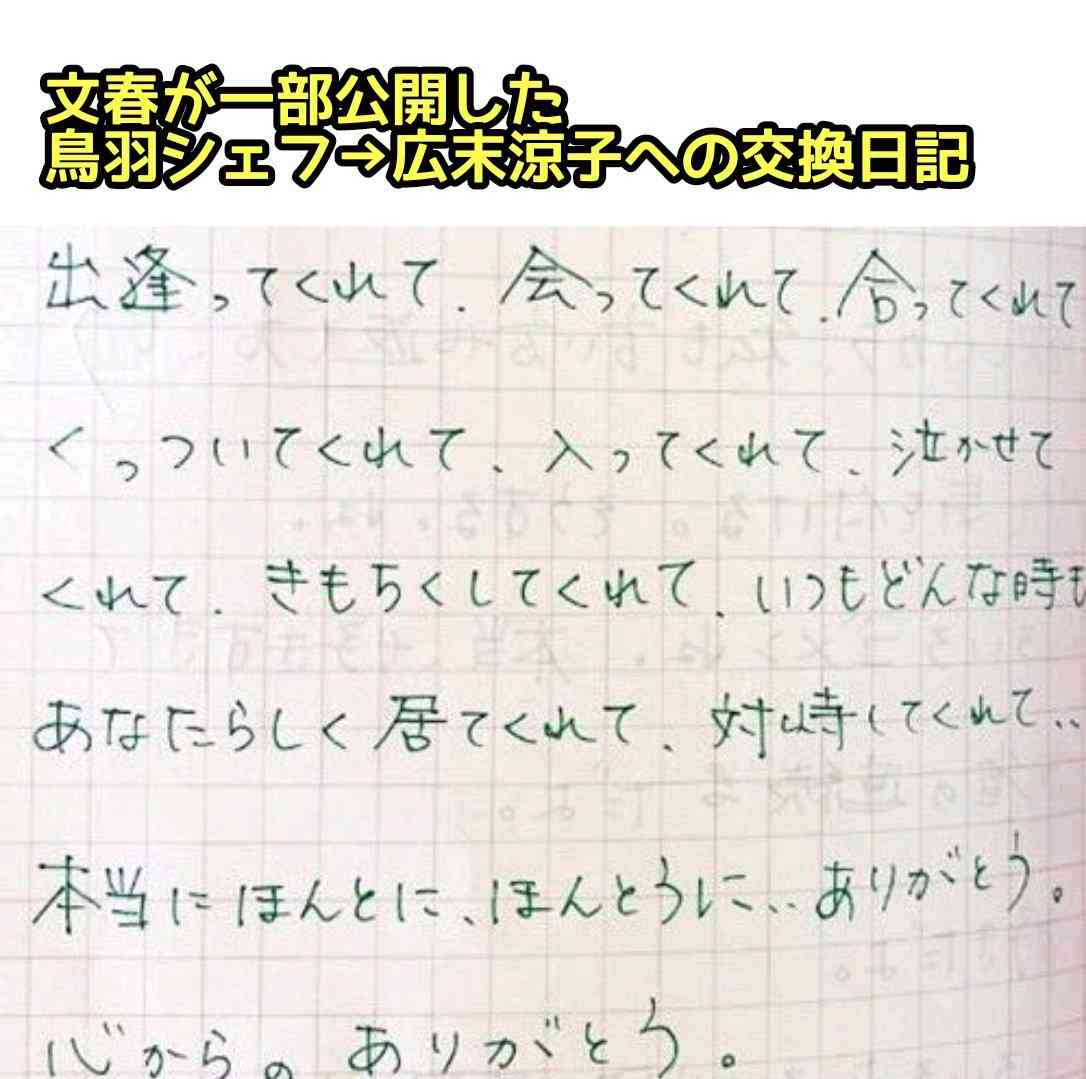 文春が一部公開した
鳥羽シェフ→広末涼子への交換日記
出逢ってくれて、会ってくれて、合ってくれて
くっついてくれて、入ってくれて、泣かせて
くれて、きもちくしてくれて、いつもどんな時も
あなたらしく居てくれて、対峙してくれて‥
本当にほんとに、ほんとうに‥ありがとう。
心からの ありがとう。